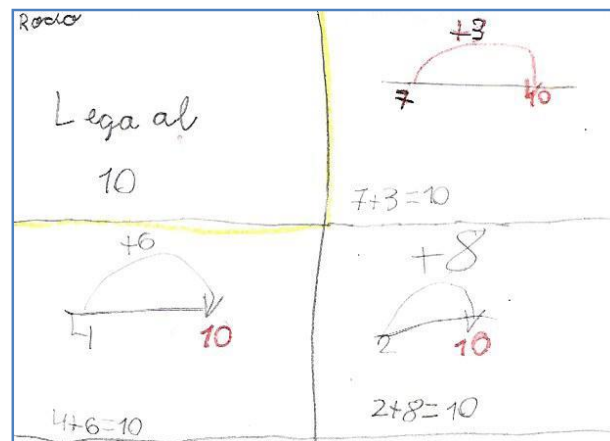 Rodo
Lega al
10
+3
7 10
7+3=10
+6
4 10
4+6=10
+8
2 10
2+8=10